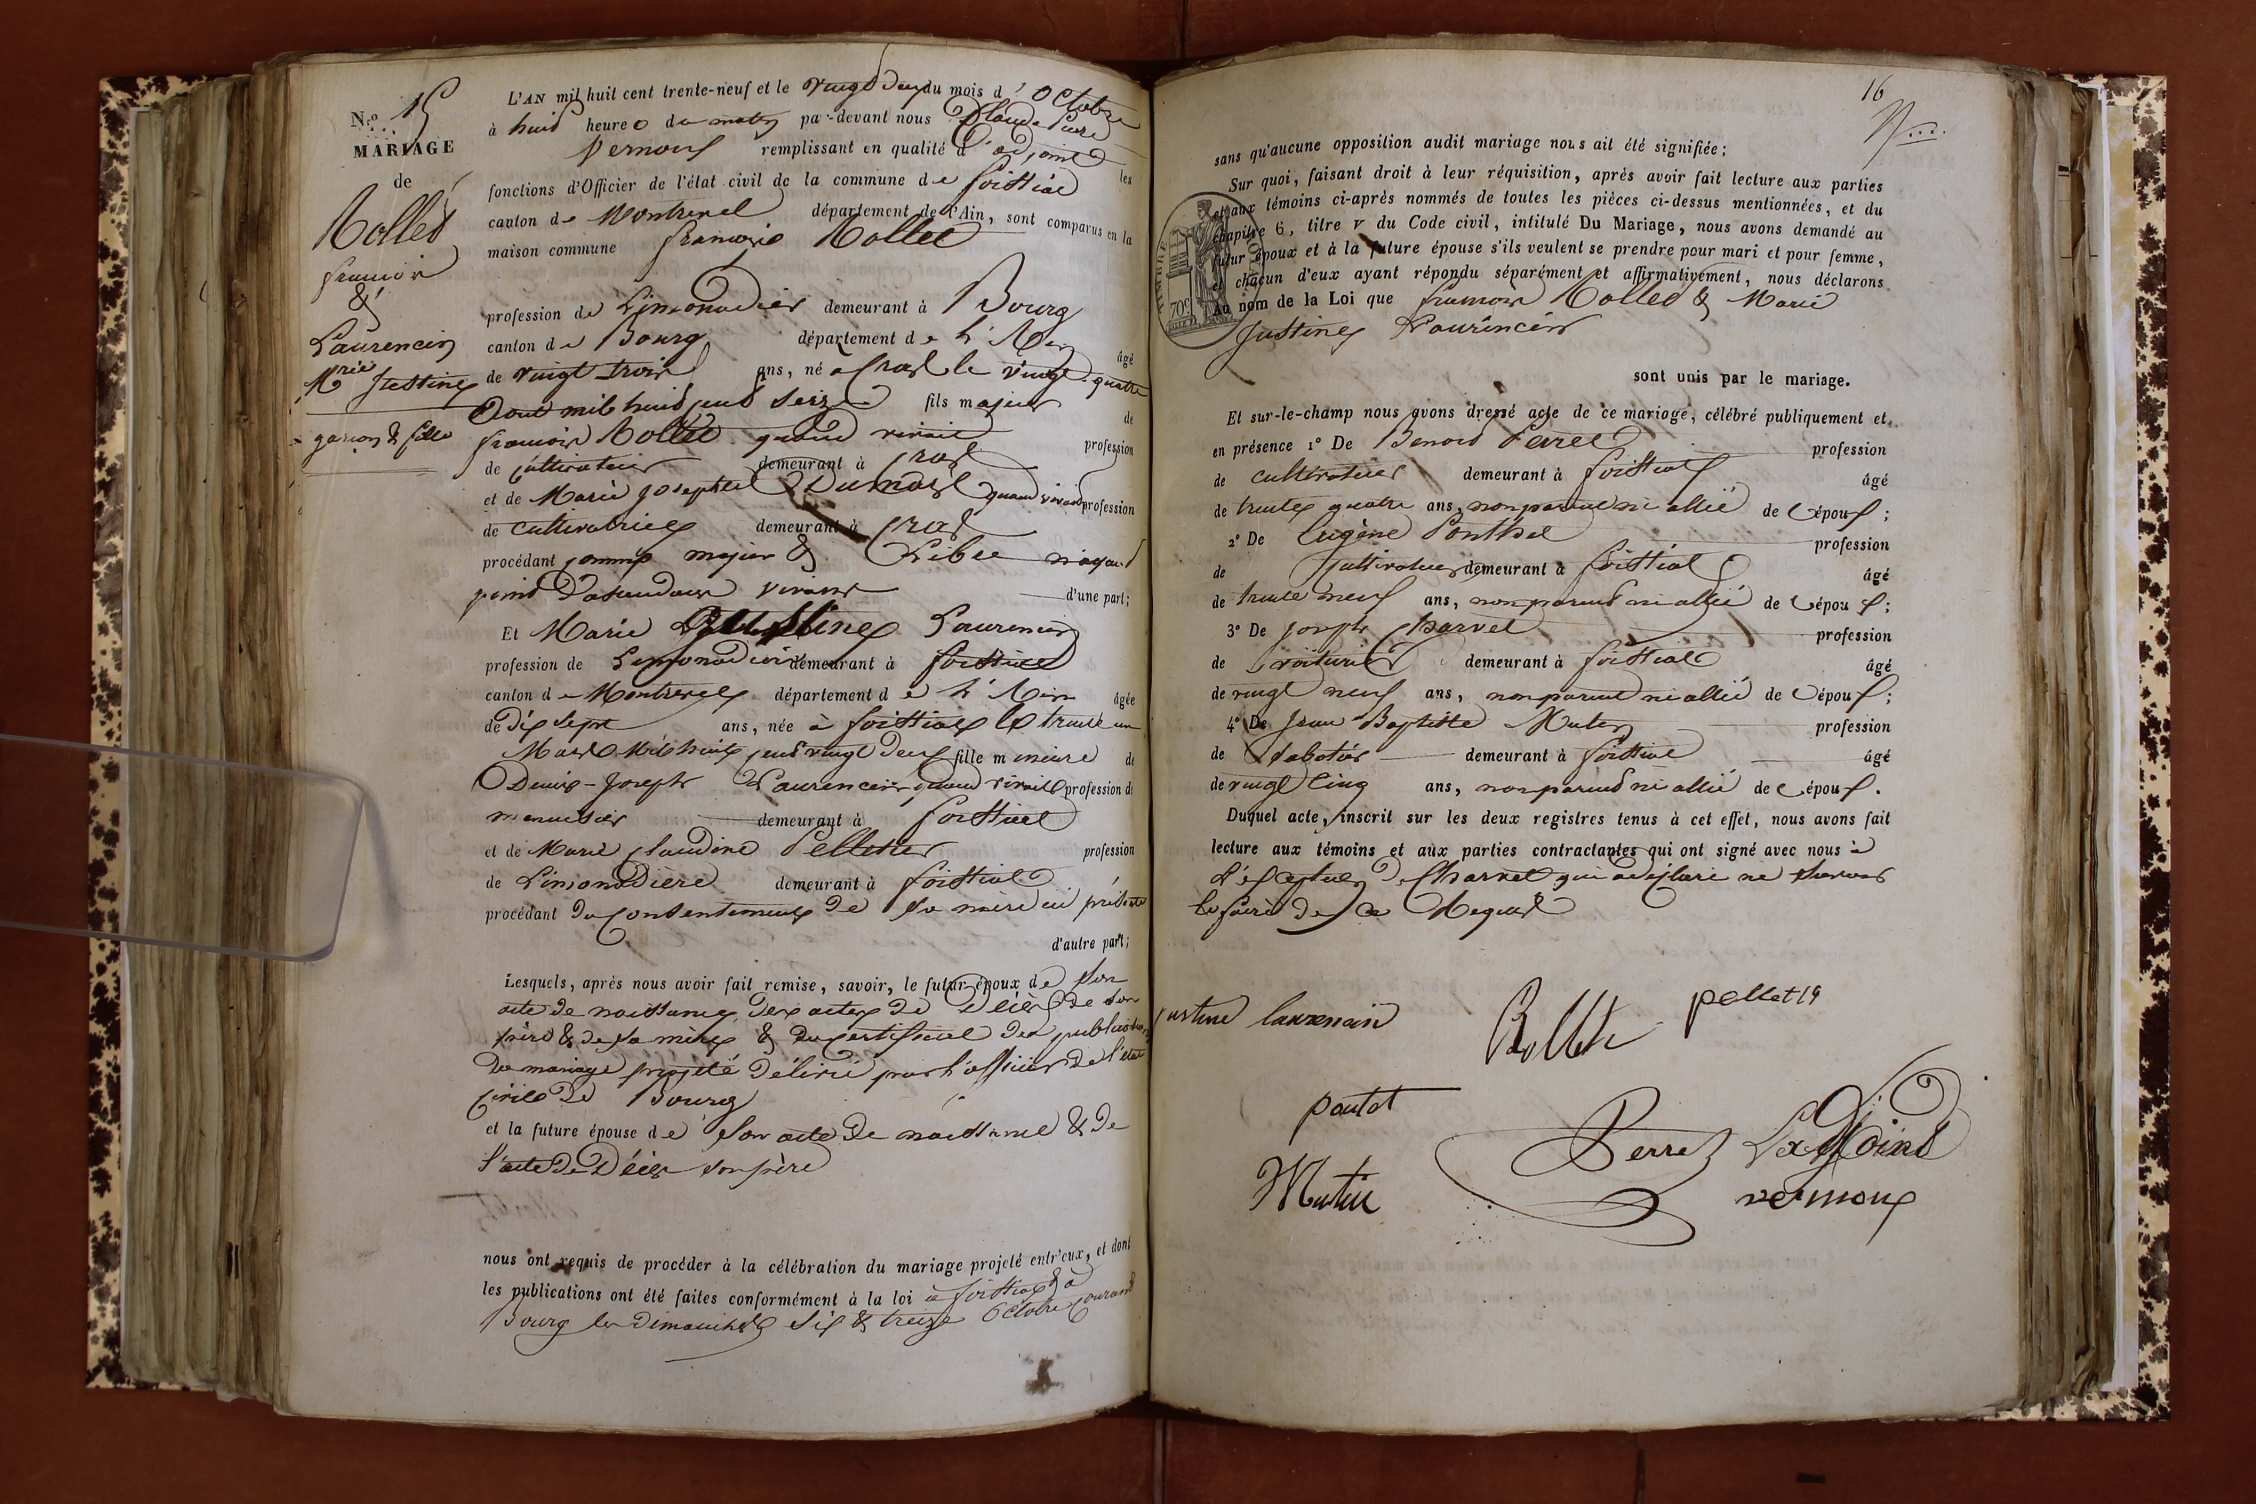 N.o 15
MARIAGE
de
Rollet
françois
&
Laurencin
Mrie Justine
garçon & fille
L'AN mil huit cent trente-neuf et le vingt deux du mois d'Octobre
à huit heures du matin par-devant nous Claude Pierre
Vernoux remplissant en qualité d'adjoint les
fonctions d'Officier de l'état civil de la commune de foissiat
canton de Montrevel département de l'Ain, sont comparus en la
maison commune françois Rollet
profession de Limonadier demeurant à Bourg
canton de Bourg département de L'Ain âgé
de vingt trois ans, né à Cras le vingt quatre
Aout mil huit cent seize fils majeur de
françois Rollet quand vivait profession
de Cultivateur demeurant à Cras
et de Marie Josephte Dumas quand vivait profession
de cultivatrice demeurant à Cras
procédant comme majeur & Libre n'ayant
point d'ascendans vivans d'une part;
Et Marie Justine Laurencin
profession de Limonadière demeurant à foissiat
canton de Montrevel département de L'Ain âgée
de dix sept ans, née à foissiat le trente un
Mars Mil huit cent vingt deux fille mineure de
Denis-Joseph Laurencin quand vivait profession de
menuisier demeurant à foissiat
et de Marie Claudine Pelletier profession
de Limonadière demeurant à foissiat
procédant du consentement de sa mère ici présente
d'autre part;
Lesquels, après nous avoir fait remise, savoir, le futur époux de son
acte de naissance, des actes de Décès de son
père & de sa mère & du certificat des publications
du mariage projeté délivré par L'officier de l'état
civil de Bourg
et la future épouse de son acte de naissance & de
l'acte de Décès son père
nous ont requis de procéder à la célébration du mariage projeté entr'eux, et dont
les publications ont été faites conformément à la loi à foissiat & à
Bourg les dimanches six & treize Octobre courant
16
sans qu'aucune opposition audit mariage nous ait été signifiée;
Sur quoi, faisant droit à leur réquisition, après avoir fait lecture aux parties
et aux témoins ci-après nommés de toutes les pièces ci-dessus mentionnées, et du
chapitre 6, titre v du Code civil, intitulé Du Mariage, nous avons demandé au
futur époux et à la future épouse s'ils veulent se prendre pour mari et pour femme,
et chacun d'eux ayant répondu séparément et affirmativement, nous déclarons
Au nom de la Loi que françois Rollet & Marie
Justine Laurencin
70c
sont unis par le mariage.
Et sur-le-champ nous avons dressé acte de ce mariage, célébré publiquement et
en présence 1° De Benoit Perret profession
de cultivateur demeurant à foissiat âgé
de trente quatre ans, non parent ni allié de l'époux;
2° De Eugène Ponthot profession
de Cultivateur demeurant à foissiat âgé
de trente neuf ans, non parent ni allié de l'époux;
3° De Joseph Charvet profession
de voiturier demeurant à foissiat âgé
de vingt neuf ans, non parent ni allié de l'époux;
4° De Jean Baptiste Mutin profession
de Sabotier demeurant à foissiat âgé
de vingt Cinq ans, non parent ni allié de l'époux.
Duquel acte, inscrit sur les deux registres tenus à cet effet, nous avons fait
lecture aux témoins et aux parties contractantes qui ont signé avec nous à
l'exception de Charvet qui a déclaré ne savoir
le faire de ce Requis
justine laurencin
Rollet
pelletier
pontot
Perret
L'adjoint
Mutin
vernoux